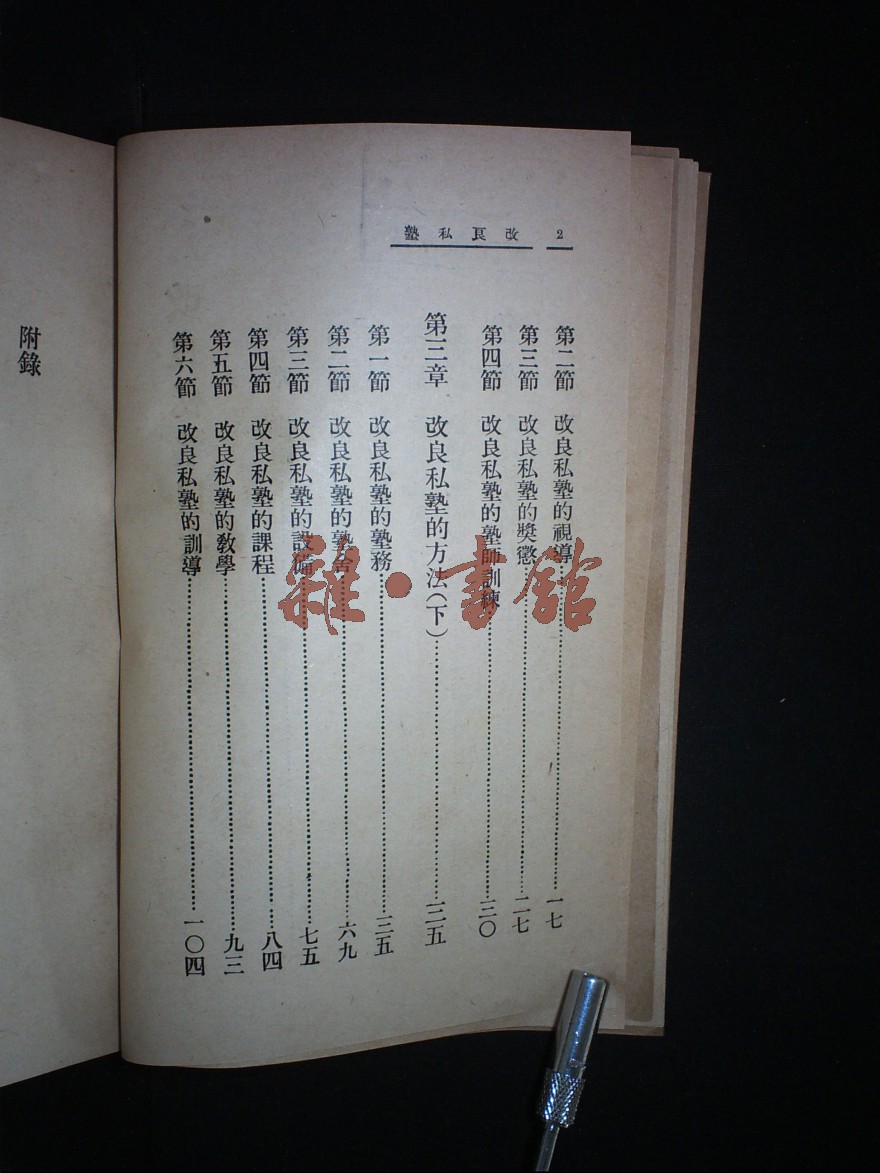 2 改良私塾
第二節 改良私塾的視導…一七
第三節 改良私塾的獎懲…二七
第四節 改良私塾的塾師訓練…三〇
第三章 改良私塾的方法(下)…三五
第一節 改良私塾的塾務…三五
第二節 改良私塾的塾舍…六九
第三節 改良私塾的設備…七五
第四節 改良私塾的課程…八四
第五節 改良私塾的教學…九三
第六節 改良私塾的訓導…一〇四
附錄
雜·書館